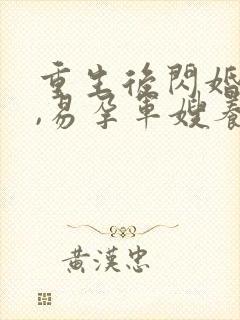 重生後閃婚
,易孕軍嫂養
黃漢忠